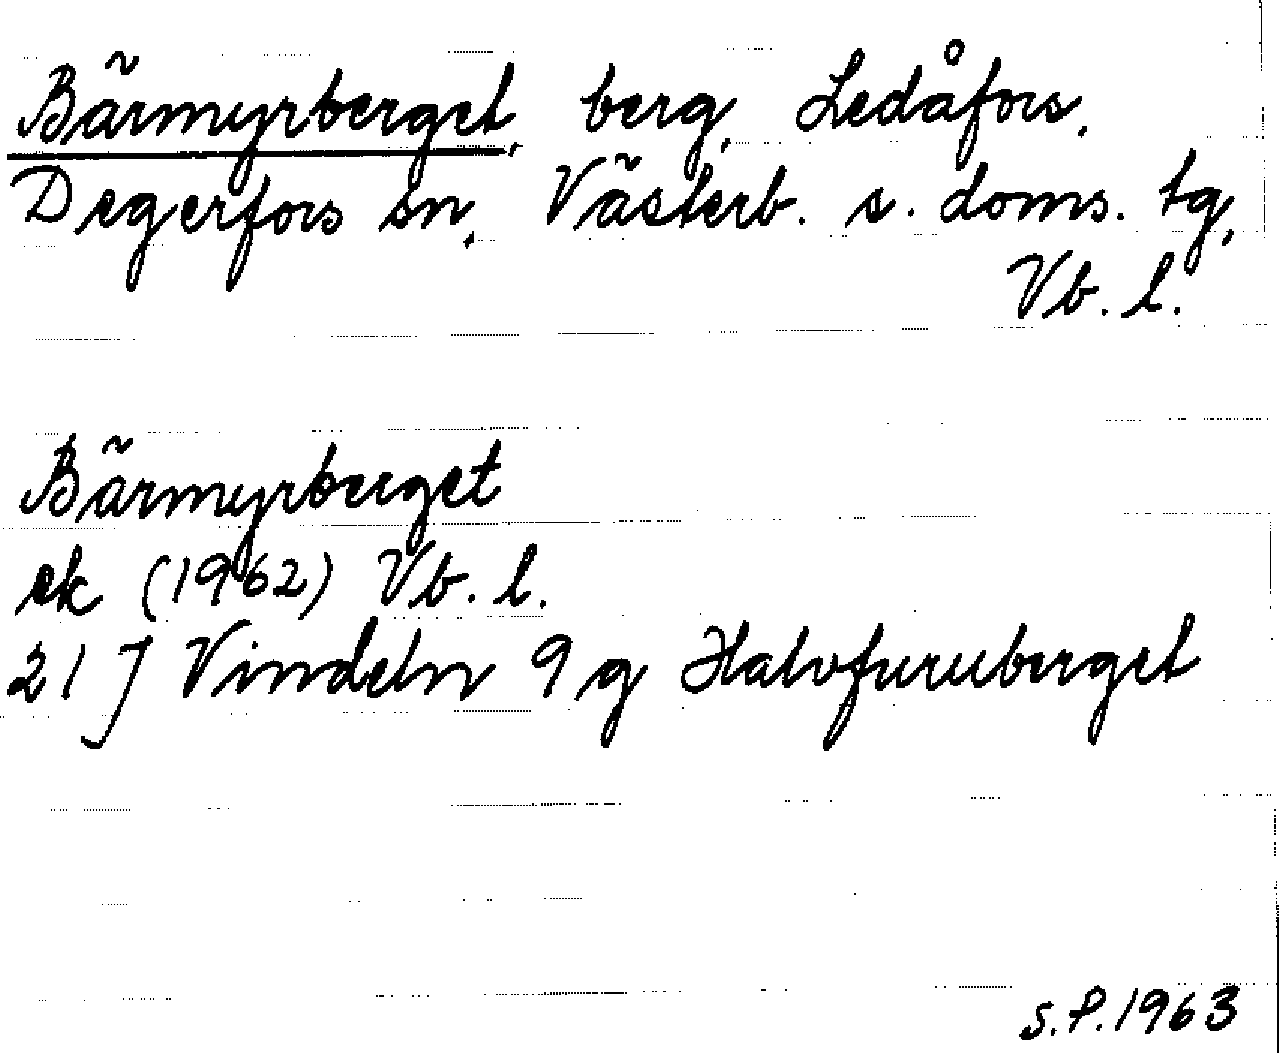 Bärmyrberget, berg, Ledåfors,
Degerfors sn, Västerb. s. doms. tg,
Vb. l.
Bärmyrberget
ek (1962) Vb. l.
21 J Vindeln 9 g Halvfuruberget
S.P. 1963